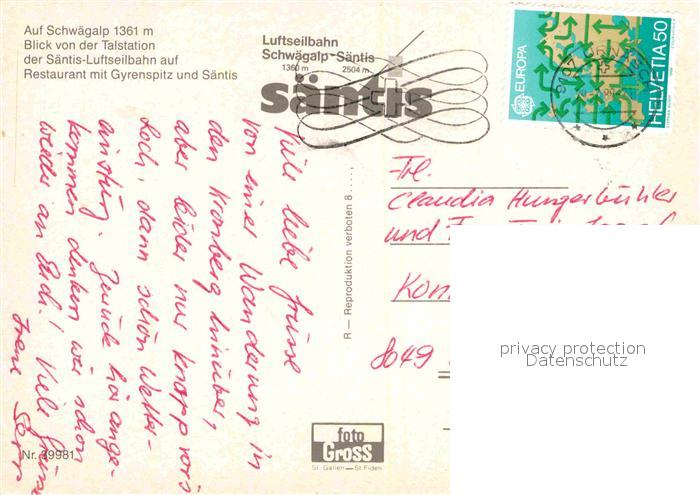 Auf Schwägalp 1361 m
Blick von der Talstation
der Säntis-Luftseilbahn auf
Restaurant mit Gyrenspitz und Säntis
Luftseilbahn
Schwägalp-Säntis
1360 m 2504 m
säntis
EUROPA
HELVETIA 50
9107
Viele liebe Grüsse
von einer Wanderung in
den Kronberg hinüber,
aber leider nur knapp vors
Loch, dann schön Wetter-
Zurück hier ange-
kommen denken wir schon
wieder an Euch! Viele Grüsse
Irene
Frl.
Claudia Hungerbühler
und
8049
R — Reproduktion verboten 8
privacy protection
Datenschutz
foto
Gross
St. Gallen—St. Fiden
Nr. 39981